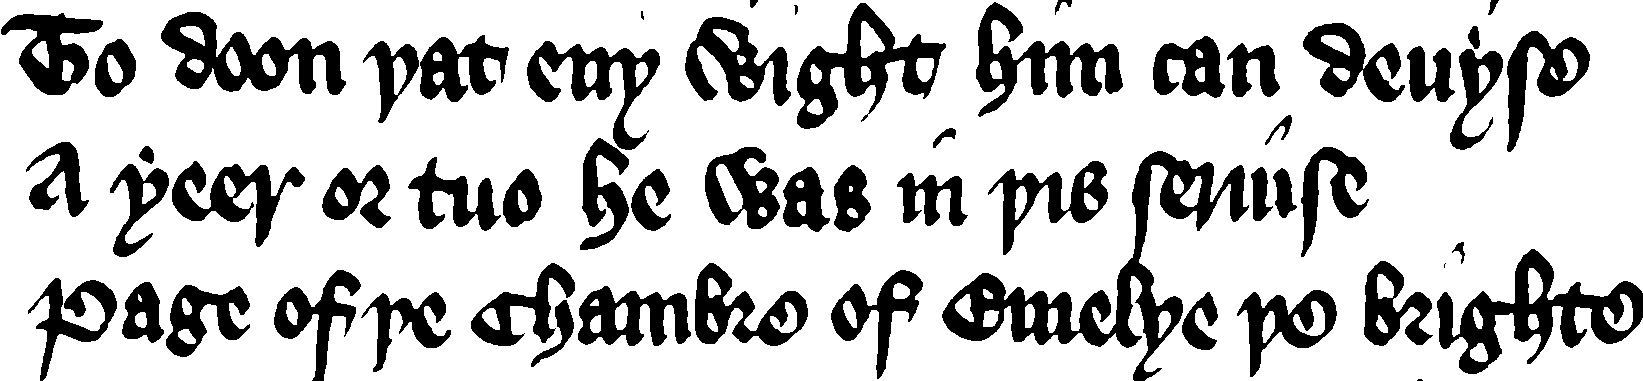 To doon þat eny wight him can deuyse
A yeer or tuo he was in þis seruise
Page of þe Chambre of Emelye þe brighte